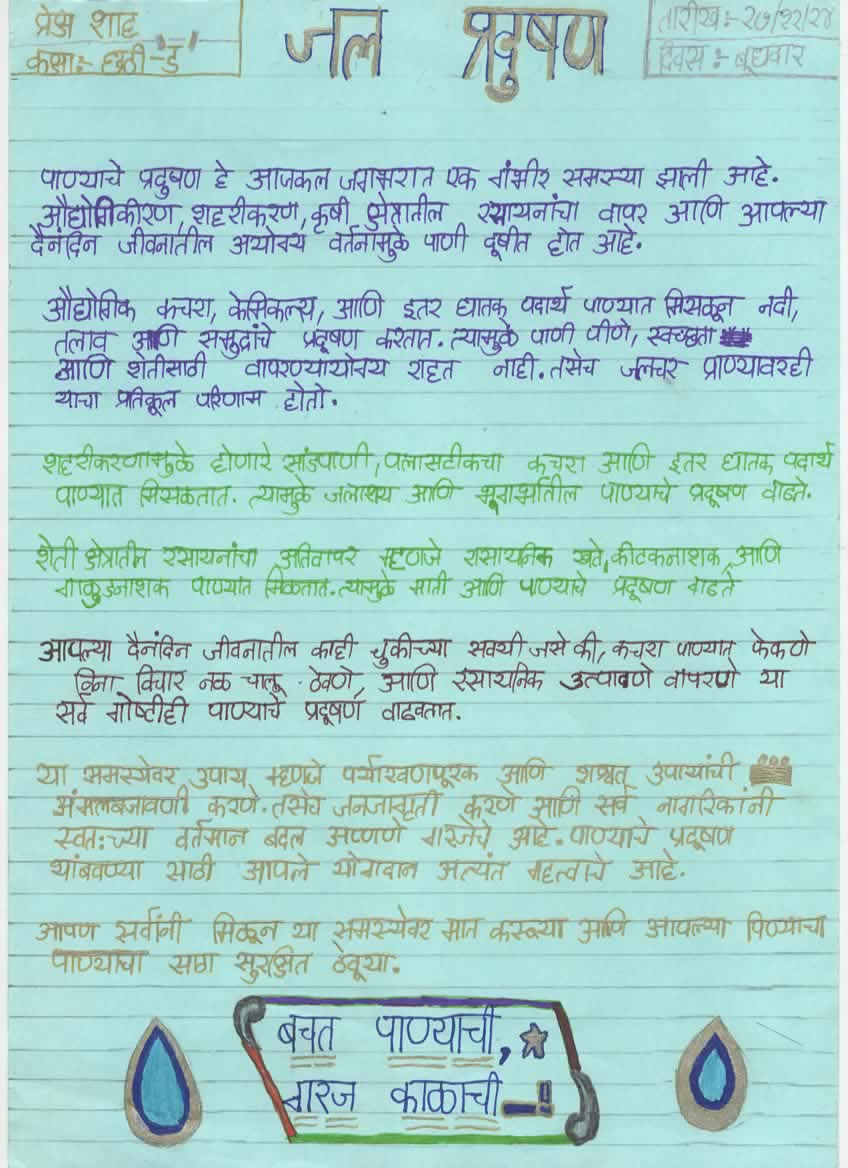 प्रेक्ष शाह
कक्षा:- छठी-'ड'
जल प्रदुषण
तारीख:- २७/१२/२४
दिवस:- बूधवार
पाण्याचे प्रदुषण हे आजकल जगभरात एक गंभीर समस्या झाली आहे.
औद्योगिकीरण, शहरीकरण, कृषी क्षेत्रातील रसायनांचा वापर आणि आपल्या
दैनंदिन जीवनातील अयोग्य वर्तनामुळे पाणी दूषीत होत आहे.
औद्योगिक कचरा, केमिकल्स, आणि इतर घातक पदार्थ पाण्यात मिसळून नदी,
तलाव आणि समुद्रांचे प्रदूषण करतात. त्यामुळे पाणी पीणे, स्वच्छता
आणि शेतीसाठी वापरण्यायोग्य राहत नाही. तसेच जलचर प्राण्यावरही
याचा प्रतिकूल परिणाम होतो.
शहरीकरणामुळे होणारे सांडपाणी, पलासटीकचा कचरा आणि इतर घातक पदार्थ
पाण्यात मिसळतात. त्यामुळे जलाशय आणि भूगर्भातील पाण्याचे प्रदूषण वाढते.
शेती क्षेत्रातील रसायनांचा अतिवापर म्हणजे रासायनिक खते, कीटकनाशक, आणि
पाण्यात मिळतात. त्यामुळे माती आणि पाण्याचे प्रदूषण वाढते
आपल्या दैनंदिन जीवनातील काही चुकीच्या सवयी जसे की, कचरा पाण्यात फेकणे
विना विचार नळ चालू ठेवणे, आणि रसायनिक उत्पादणे वापरणे या
सर्व गोष्टीही पाण्याचे प्रदूषण वाढवतात.
या समस्येवर उपाय म्हणजे पर्यावरणपूरक आणि शश्वत उपायांची
अंमलबजावणी करणे. तसेच जनजागृती करणे आणि सर्व नागरिकांनी
स्वत:च्या वर्तमान बदल आणणे गरजेचे आहे. पाण्याचे प्रदूषण
थांबवण्या साठी आपले योगदान अत्यंत महत्वाचे आहे.
आपण सर्वांनी मिळून या समस्येवर मात करूया आणि आपल्या पिण्याचा
पाण्याचा साठा सुरक्षित ठेवूया.
बचत पाण्याची,
गरज काळाची_!